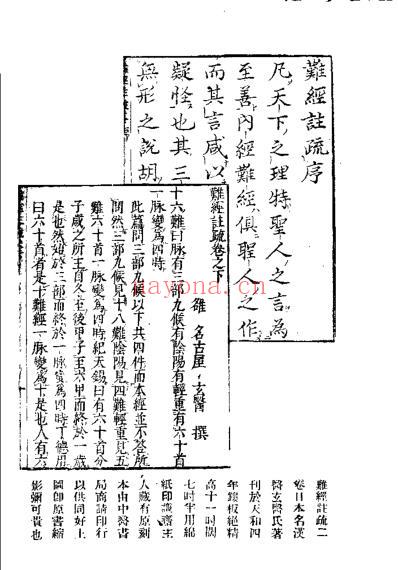 難經註疏序
凡天下之理特聖人之言為
至善內經難經俱聖人之作
而其言咸以
疑怪也其三
無形之說胡
難經註疏卷之下
雒 名古屋玄醫 撰
十六難曰脉有三部九候有陰陽有輕重有六十首
一脉變為四時
此篇問三部九候以下共四件而本經並不荅所
問然三部九候見十八難陰陽見四難輕重見五
難六十首一脉變為四時紀天錫曰有六十首分
子歲之所主自冬至後甲子至六甲而終於一歲
是也然始於三部而終於一脉變為四時丁德用
曰六十首者是十難經一脉變為十是也人有六
難經註疏二
卷日本名漢
醫玄醫氏著
刊於天和四
年鋟板絕精
高十一吋闊
七吋半用綿
紙印齋王
人藏有原刻
本由中醫書
局商請印行
以供同好上
圖卽原書縮
影彌可貴也
nayona.cn